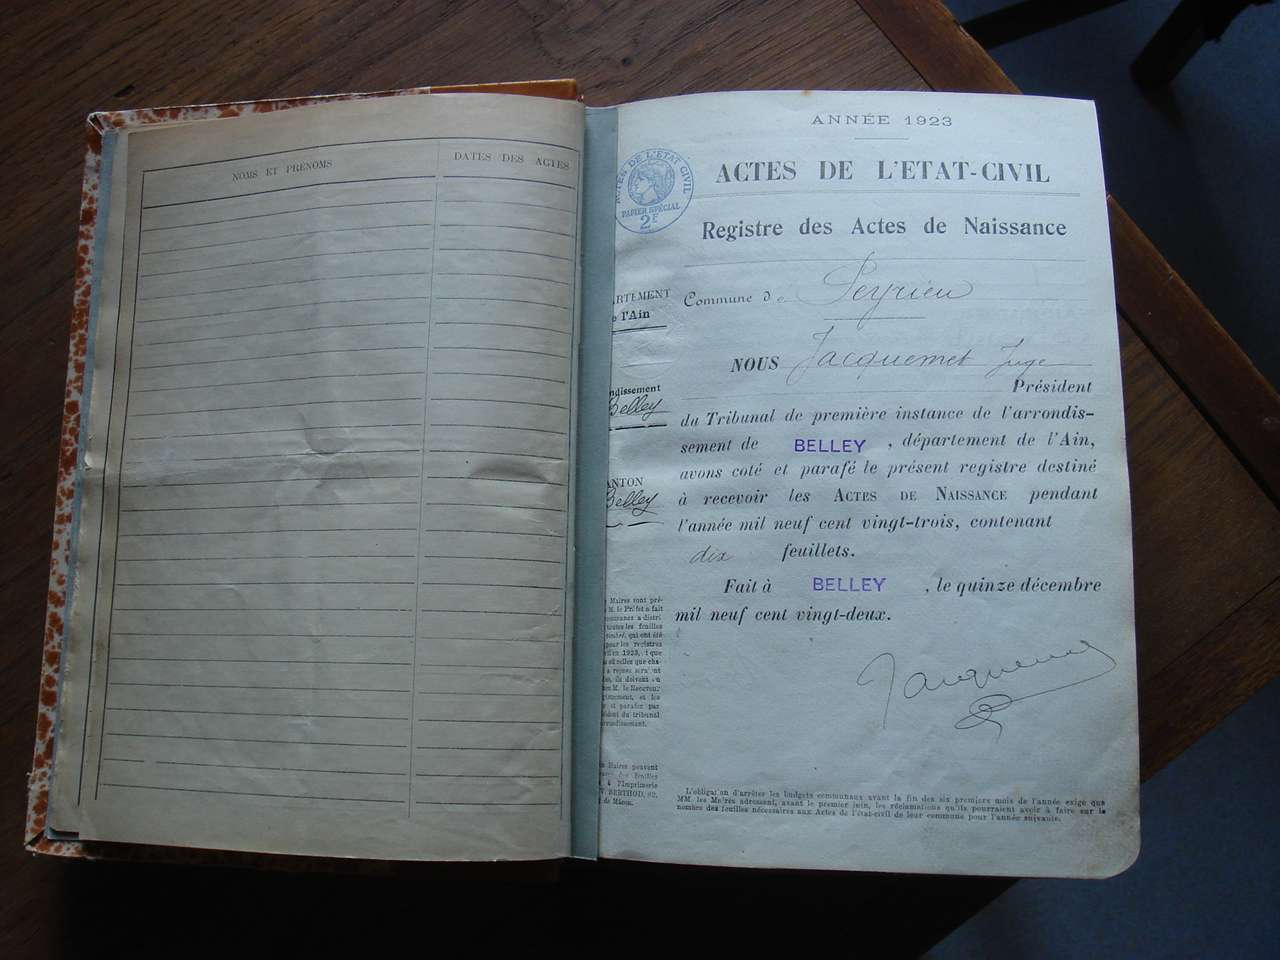 NOMS ET PRÉNOMS
DATES DES ACTES
ANNÉE 1923
ACTES DE L'ETAT-CIVIL
ACTES DE L'ETAT CIVIL
PAPIER SPÉCIAL
2F
Registre des Actes de Naissance
ARTEMENT
e l'Ain
Commune de Peyrieu
NOUS Jacquemet Juge
Président
ndissement
Belley
du Tribunal de première instance de l'arrondis-
sement de BELLEY, département de l'Ain,
avons coté et parafé le présent registre destiné
ANTON
Belley
à recevoir les ACTES DE NAISSANCE pendant
l'année mil neuf cent vingt-trois, contenant
dix feuillets.
Fait à BELLEY, le quinze décembre
mil neuf cent vingt-deux.
s Maires sont pré-
M. le Préfet a fait
communes a distri
toutes les feuilles
timbré, qui ont été
pour les registres
vil en 1923, et que
es où celles que cha-
a reçues seraient
tes, ils doivent en
M. le Receveur
gistrement, et les
r et parafer par
sident du tribunal
arrondissement.
Jacquemet
s Maires peuvent
des feuilles
s à l'Imprimerie
BERTHOD, 82,
de Mâcon.
L'obligation d'arrêter les budgets communaux avant la fin des six premiers mois de l'année exige que
MM. les Maires adressent, avant le premier juin, les réclamations qu'ils pourraient avoir à faire sur le
nombre des feuilles nécessaires aux Actes de l'état-civil de leur commune pour l'année suivante.